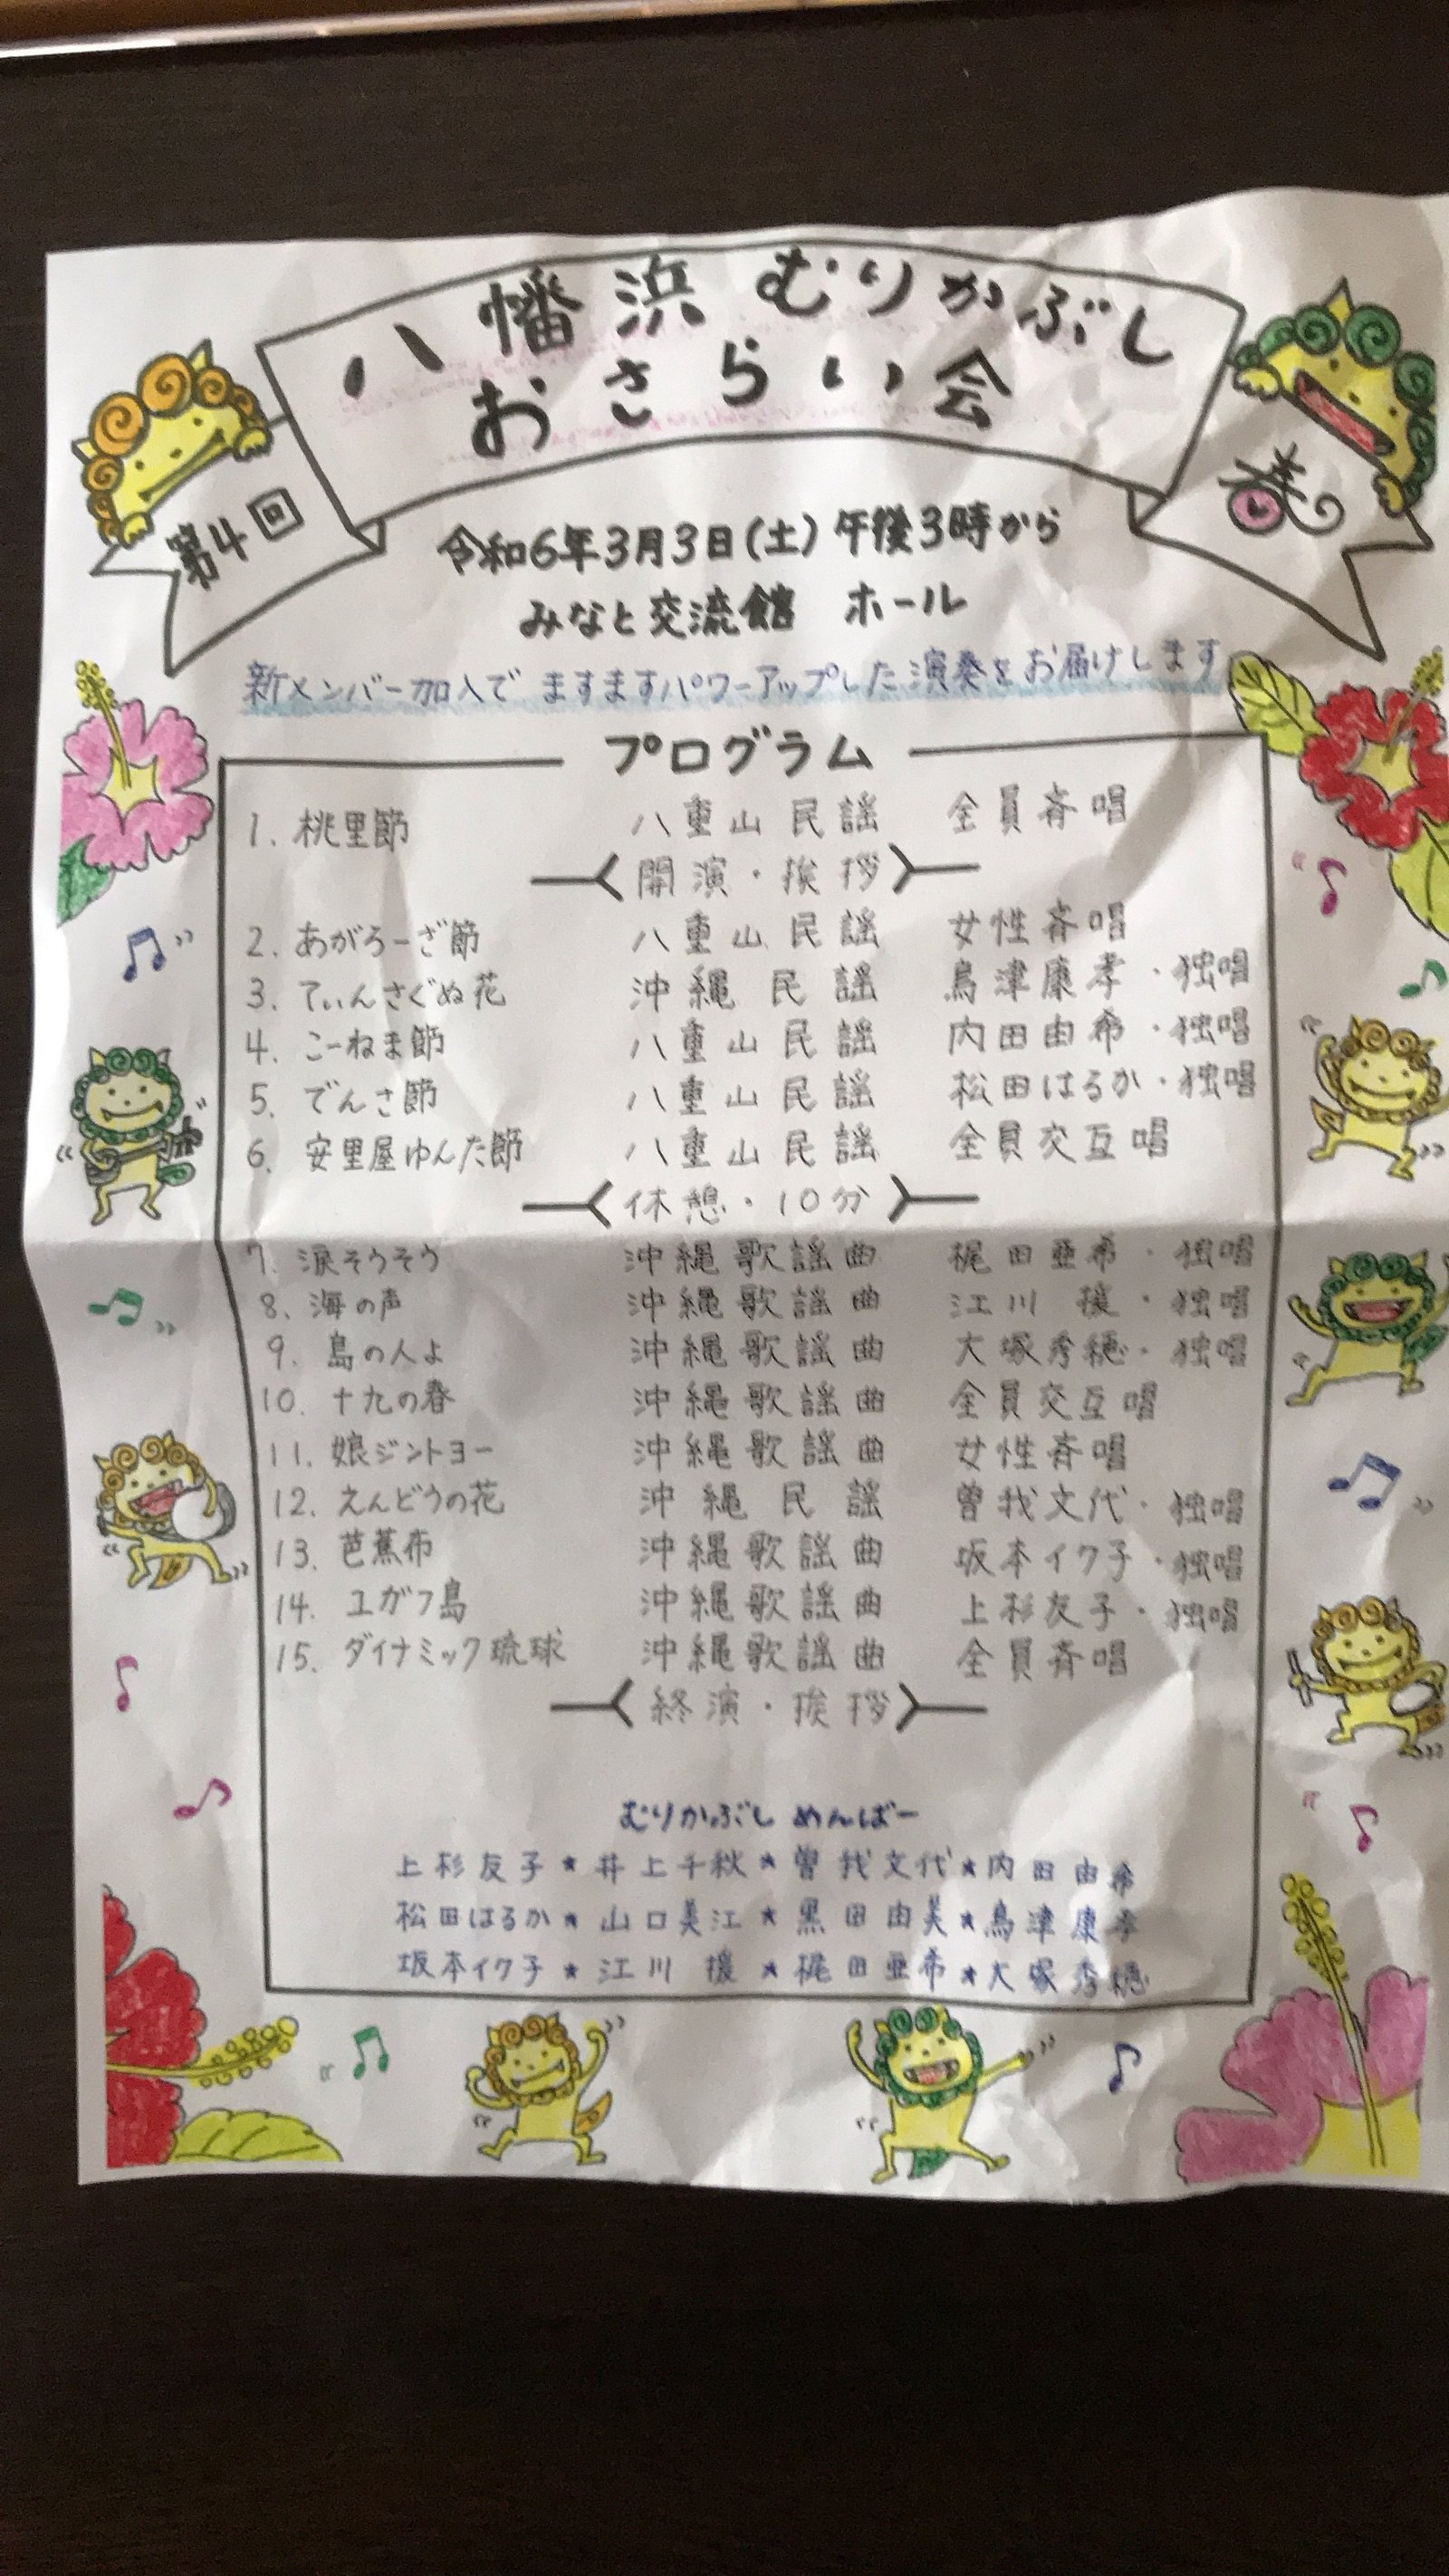 八幡浜むりかぶし
おさらい会
第4回
春
令和6年3月3日(土)午後3時から
みなと交流館 ホール
新メンバー加入でますますパワーアップした演奏をお届けします
プログラム
1. 桃里節 八重山民謡 全員斉唱
開演・挨拶
2. あがろーざ節 八重山民謡 女性斉唱
3. てぃんさぐぬ花 沖縄民謡 鳥津康孝・独唱
4. こーねま節 八重山民謡 内田由希・独唱
5. でんさ節 八重山民謡 松田はるか・独唱
6. 安里屋ゆんた節 八重山民謡 全員交互唱
休憩・10分
7. 涙そうそう 沖縄歌謡曲 梶田亜希・独唱
8. 海の声 沖縄歌謡曲 江川 援・独唱
9. 島の人よ 沖縄歌謡曲 大塚秀穂・独唱
10. 十九の春 沖縄歌謡曲 全員交互唱
11. 娘ジントヨー 沖縄歌謡曲 女性斉唱
12. えんどうの花 沖縄民謡 曽我文代・独唱
13. 芭蕉布 沖縄歌謡曲 坂本イク子・独唱
14. ユガフ島 沖縄歌謡曲 上杉友子・独唱
15. ダイナミック琉球 沖縄歌謡曲 全員斉唱
終演・挨拶
むりかぶし めんばー
上杉友子★井上千秋★曽我文代★内田由希
松田はるか★山口美江★黒田由美★鳥津康孝
坂本イク子★江川 援★梶田亜希★大塚秀穂